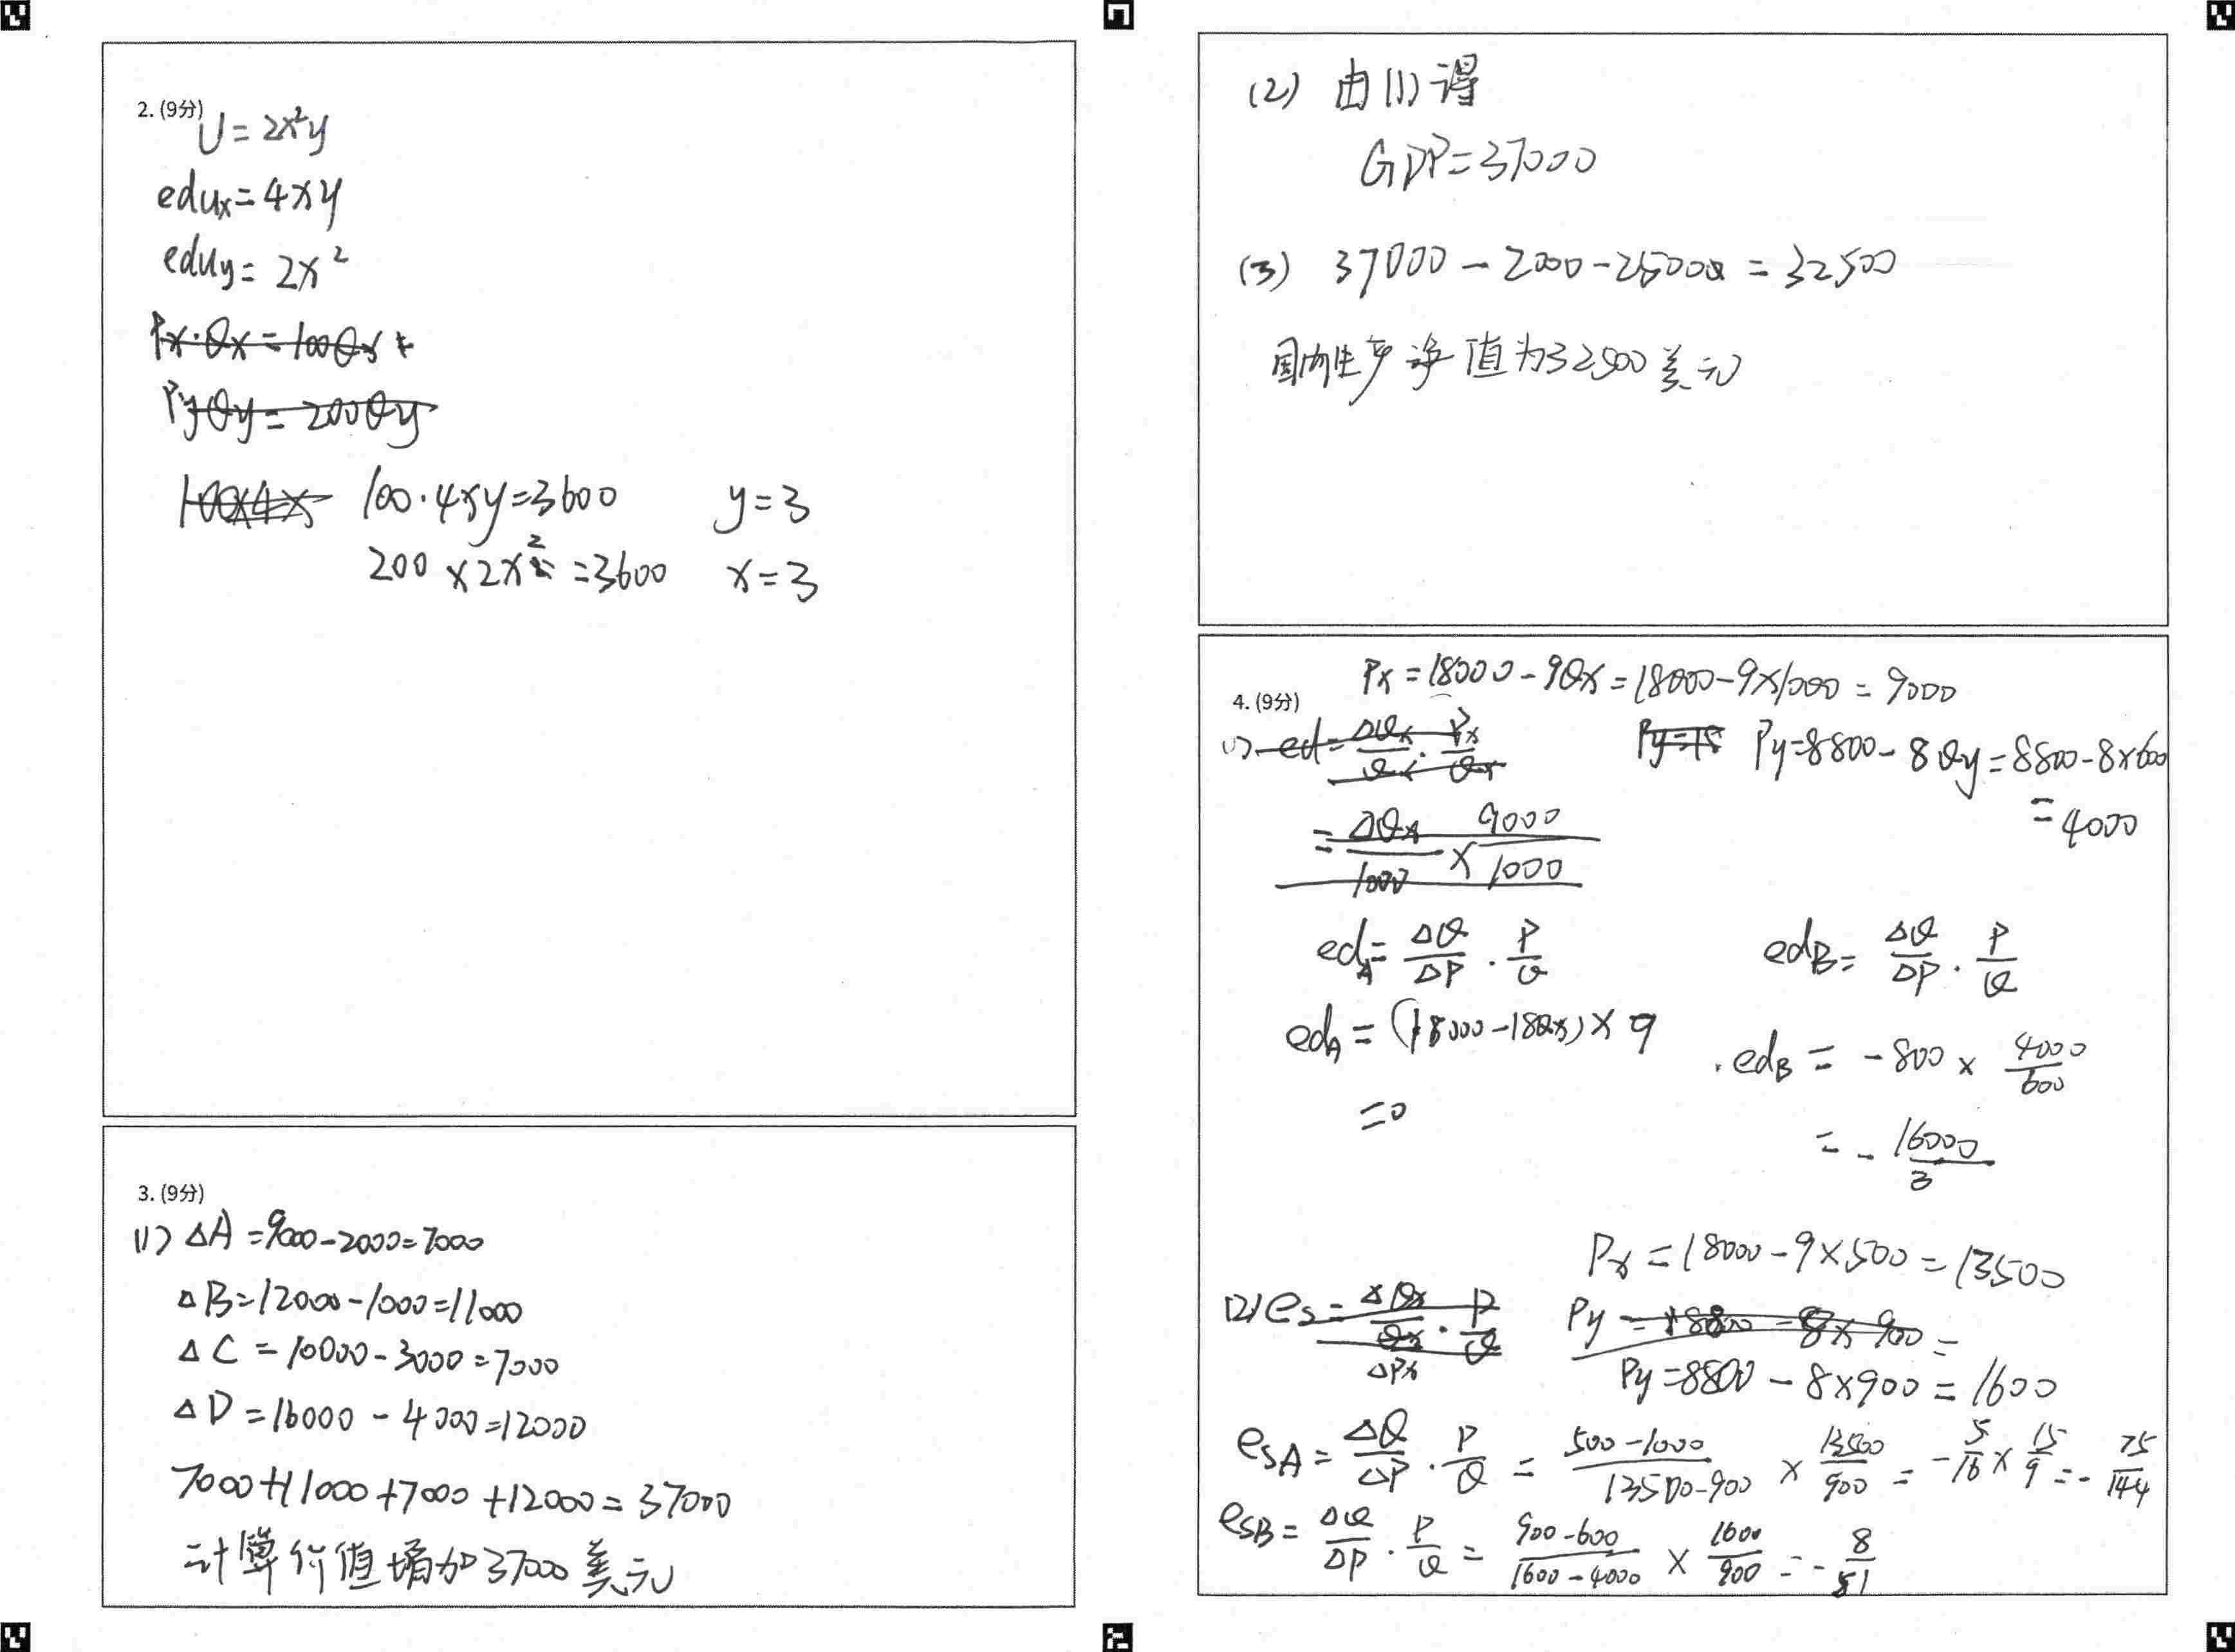 2. (9分)
U = 2x²y
edux = 4xy
eduy = 2x²
Px·Qx = 100Qx +
PyQy = 200Qy
100x4x 100·4xy=3600 y=3
200×2x² =3600 x=3
3. (9分)
(1) ΔA =9000-2000=7000
ΔB=12000-1000=11000
ΔC =10000-3000=7000
ΔD =16000 - 4000=12000
7000+11000+7000+12000=37000
计算价值增加37000美元
(2) 由(1)得
GDP=37000
(3) 37000 - 2000 - 2500 = 32500
国内生产净值为32500美元
4. (9分)
Px = 18000 - 9Qx = 18000-9×1000 = 9000
(1) ed = ΔQx/Qx · Px/Qx
Py=18 Py=8800 - 8Qy = 8800-8×600
= 4000
= ΔQx/1000 × 9000/1000
edA = ΔQ/ΔP · P/Q edB = ΔQ/ΔP · P/Q
edA = (18000-18Qx) × 9
edB = -800 × 4000/600
=0
= - 16000/3
Px = 18000 - 9×500 = 13500
(2) es = ΔQx/ΔPx · P/Q Py = 18800 - 8×900 =
Py =8800 - 8×900 = 1600
esA = ΔQ/ΔP · P/Q = 500-1000/13500-900 × 13500/900 = -5/16 × 15/9 = - 75/144
esB = ΔQ/ΔP · P/Q = 900-600/1600-4000 × 1600/900 = - 8/51